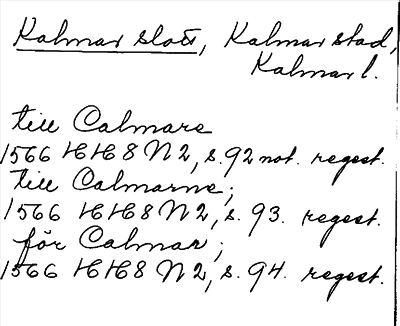 Kalmar slott, Kalmar stad,
Kalmar l.
till Calmare
1566 HH8 N2, s. 92 not. regest.
till Calmarne;
1566 HH8 N2, s. 93. regest.
för Calmar;
1566 HH8 N2, s. 94. regest.